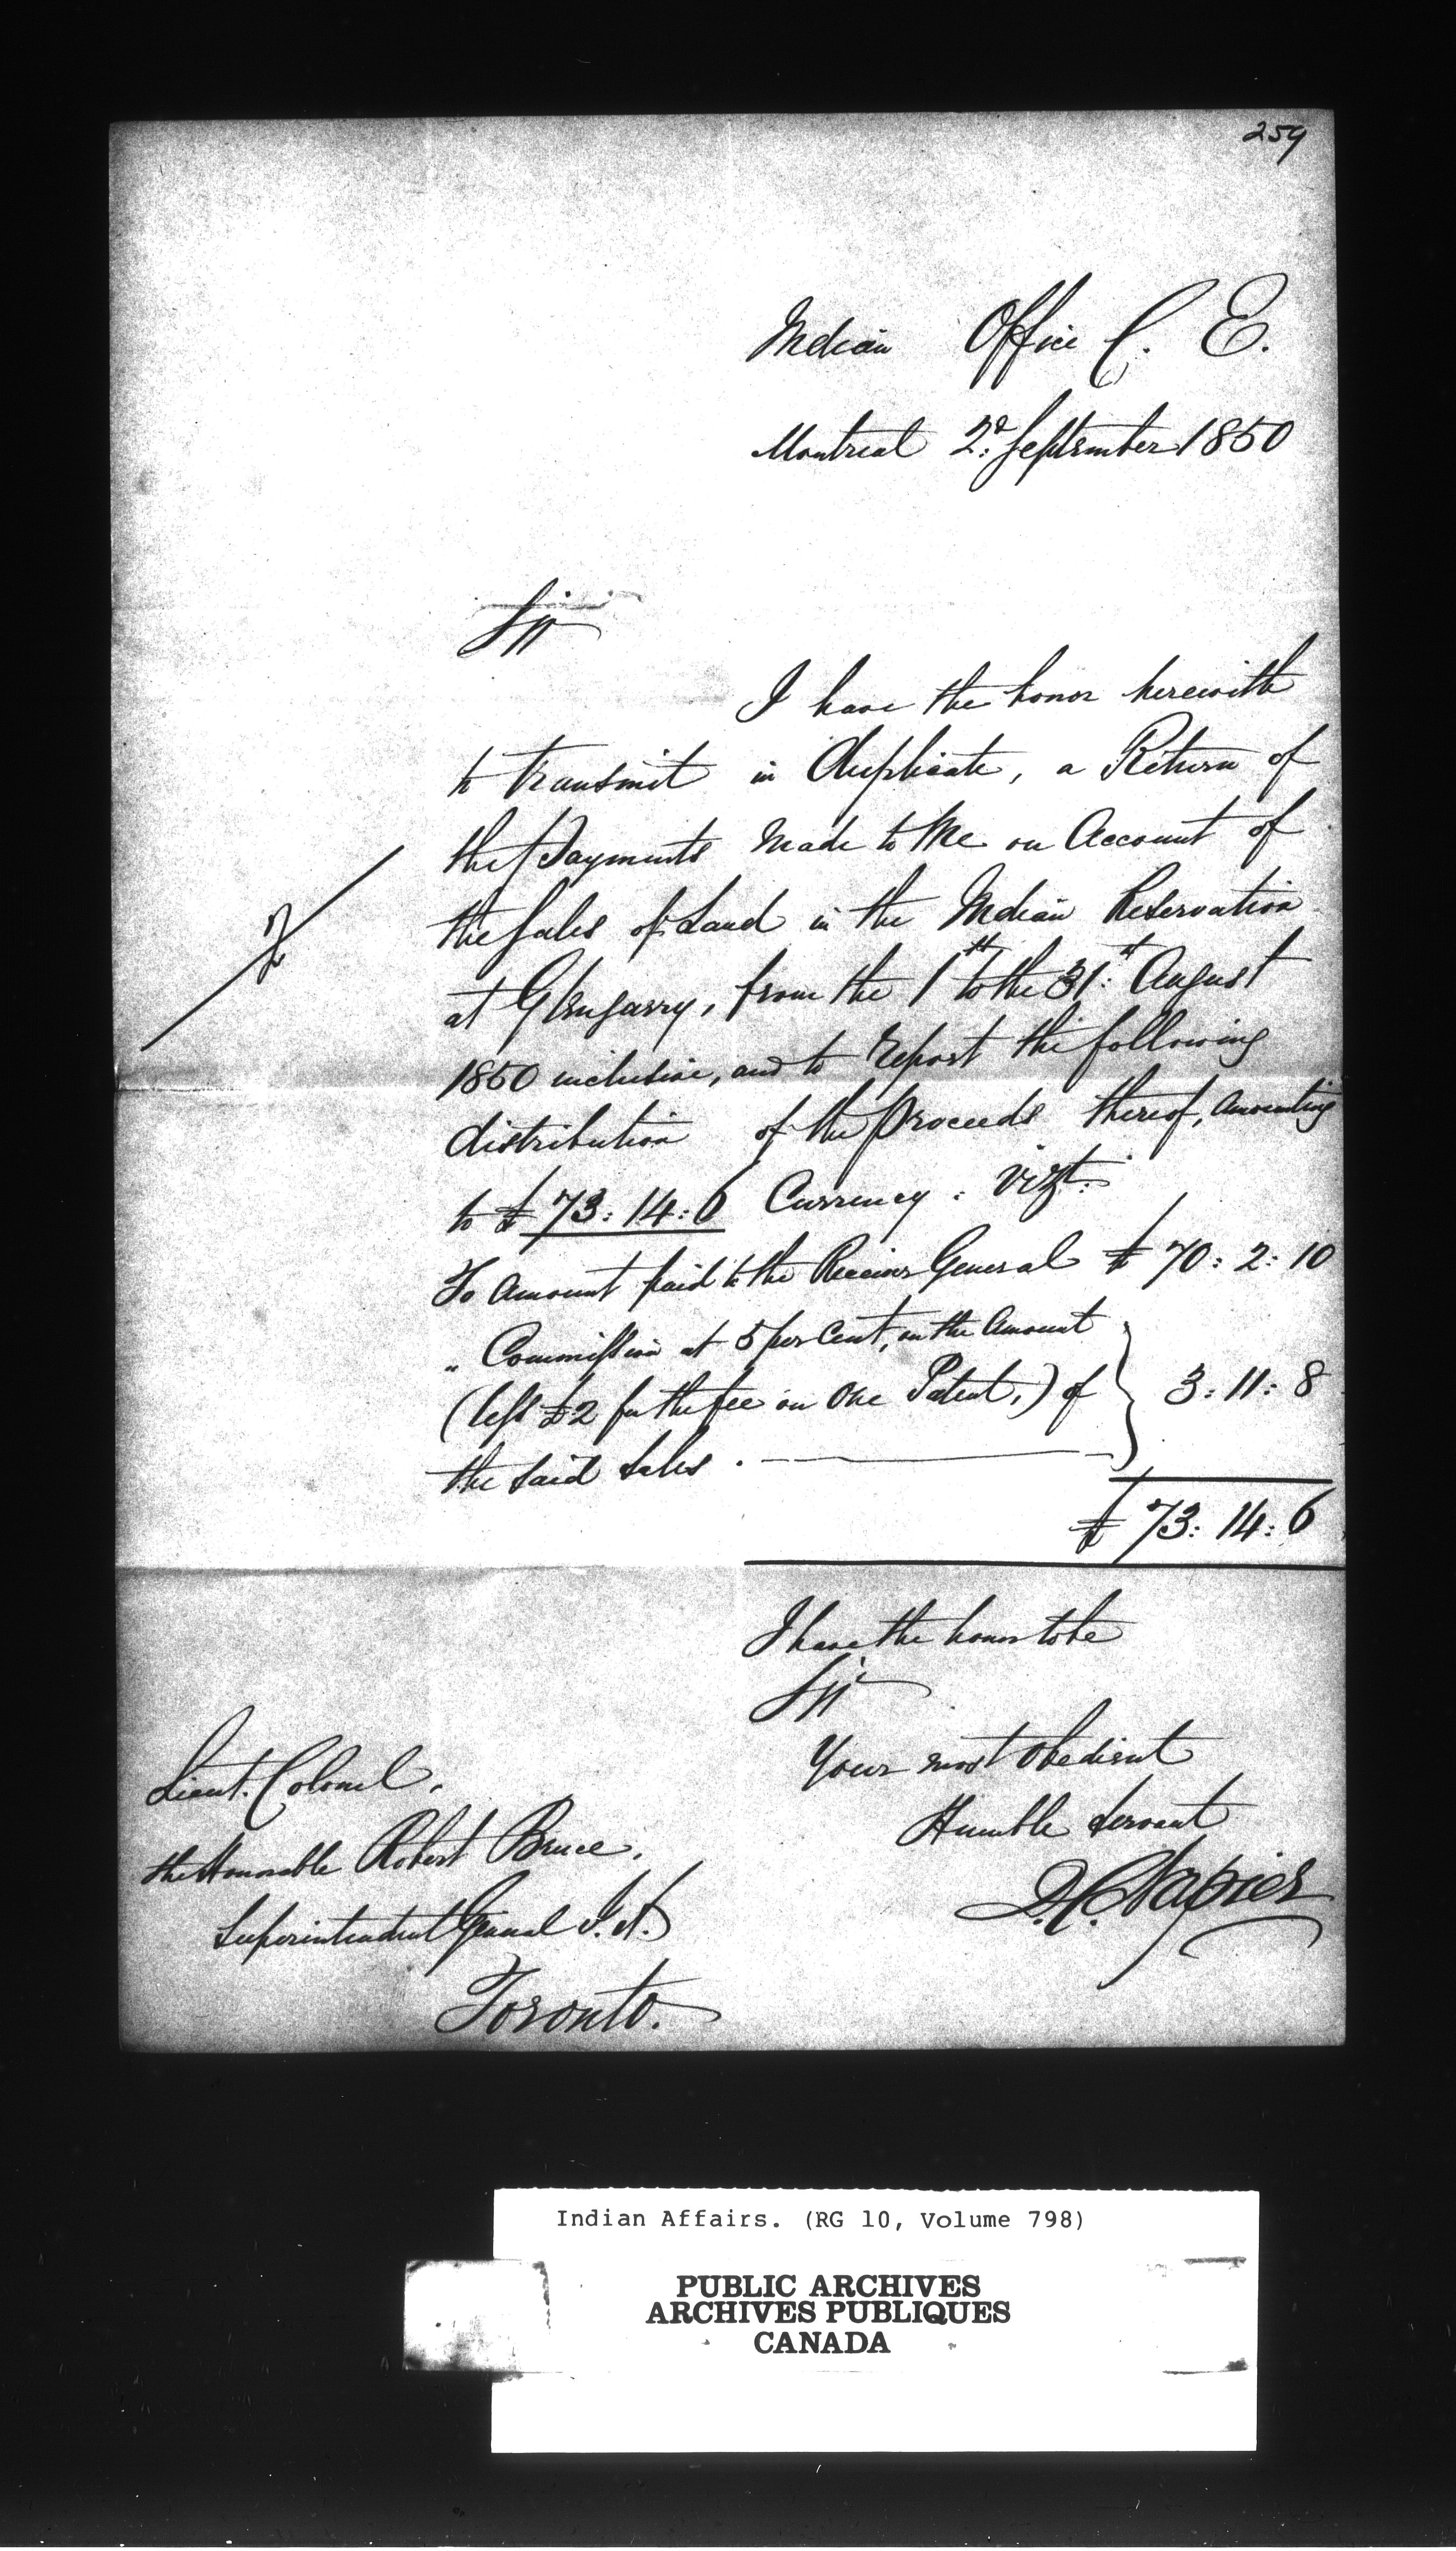 259
Indian Office C. E.
Montreal 2d. September 1850
Sir
I have the honor herewith
to transmit in Duplicate, a Return of
the Payments made to Me on Account of
the Sales of Land in the Indian Reservation
at Glengarry, from the 1st to the 31st. August
1850 inclusive, and to report the following
distribution of the Proceeds thereof, amounting
to £ 73: 14: 6 Currency: Vizt:
To Amount paid to the Receiver General £ 70: 2: 10
" Commission at 5 per Cent, on the Amount
(less £2 for the fee on One Patent,) of 3: 11: 8
the said Sales.
£ 73: 14: 6
I have the honor to be
Sir
Your most obedient
Humble Servant
D. C. Napier
Lieut. Colonel,
the Honorable Robert Bruce,
Superintendent General I. A.
Toronto.
Indian Affairs. (RG 10, Volume 798)
PUBLIC ARCHIVES
ARCHIVES PUBLIQUES
CANADA